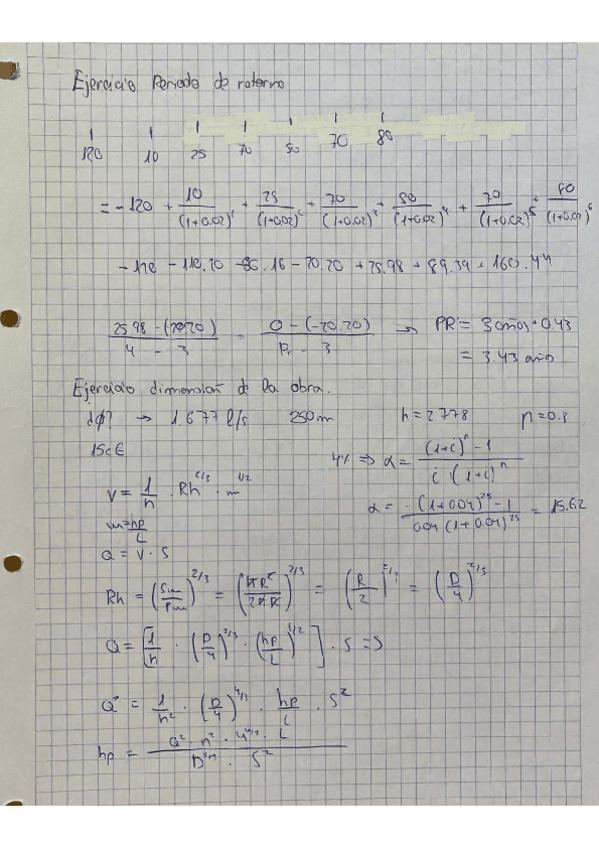 Ejercicio Periodo de retorno
120 10 25 70 50 70 80
= -120 + 10/(1+0.02)¹ + 25/(1+0.02)² + 70/(1+0.02)³ + 50/(1+0.02)⁴ + 70/(1+0.02)⁵ + 80/(1+0.02)⁶
-120 -110.20 -86.16 -20.20 +25.98 +89.39 +160.44
(25.98-(-20.20))/(4-3) = (0-(-20.20))/(Pr-3) → PR = 3 años + 0.43
= 3.43 año
Ejercicio dimensión de la obra.
¿φ? → 1.677 l/s 250m h=2778 η=0.8
15c€
4% ⇒ α = ((1+i)ⁿ-1)/(i·(1+i)ⁿ)
V = 1/n · Rh^2/3 · m^1/2
α = ((1+0.04)²⁵-1)/(0.04(1+0.04)²⁵) = 15.62
m = hp/L
Q = V · S
Rh = (Sm/Pm)^2/3 = (πR²/2πR)^2/3 = (R/2)^2/3 = (D/4)^2/3
Q = [1/n · (D/4)^2/3 · (hp/L)^1/2] · S ⇒
Q² = 1/n² · (D/4)^4/3 · hp/L · S²
hp = (Q² · n² · 4^4/3 · L)/(D^4/3 · S²)